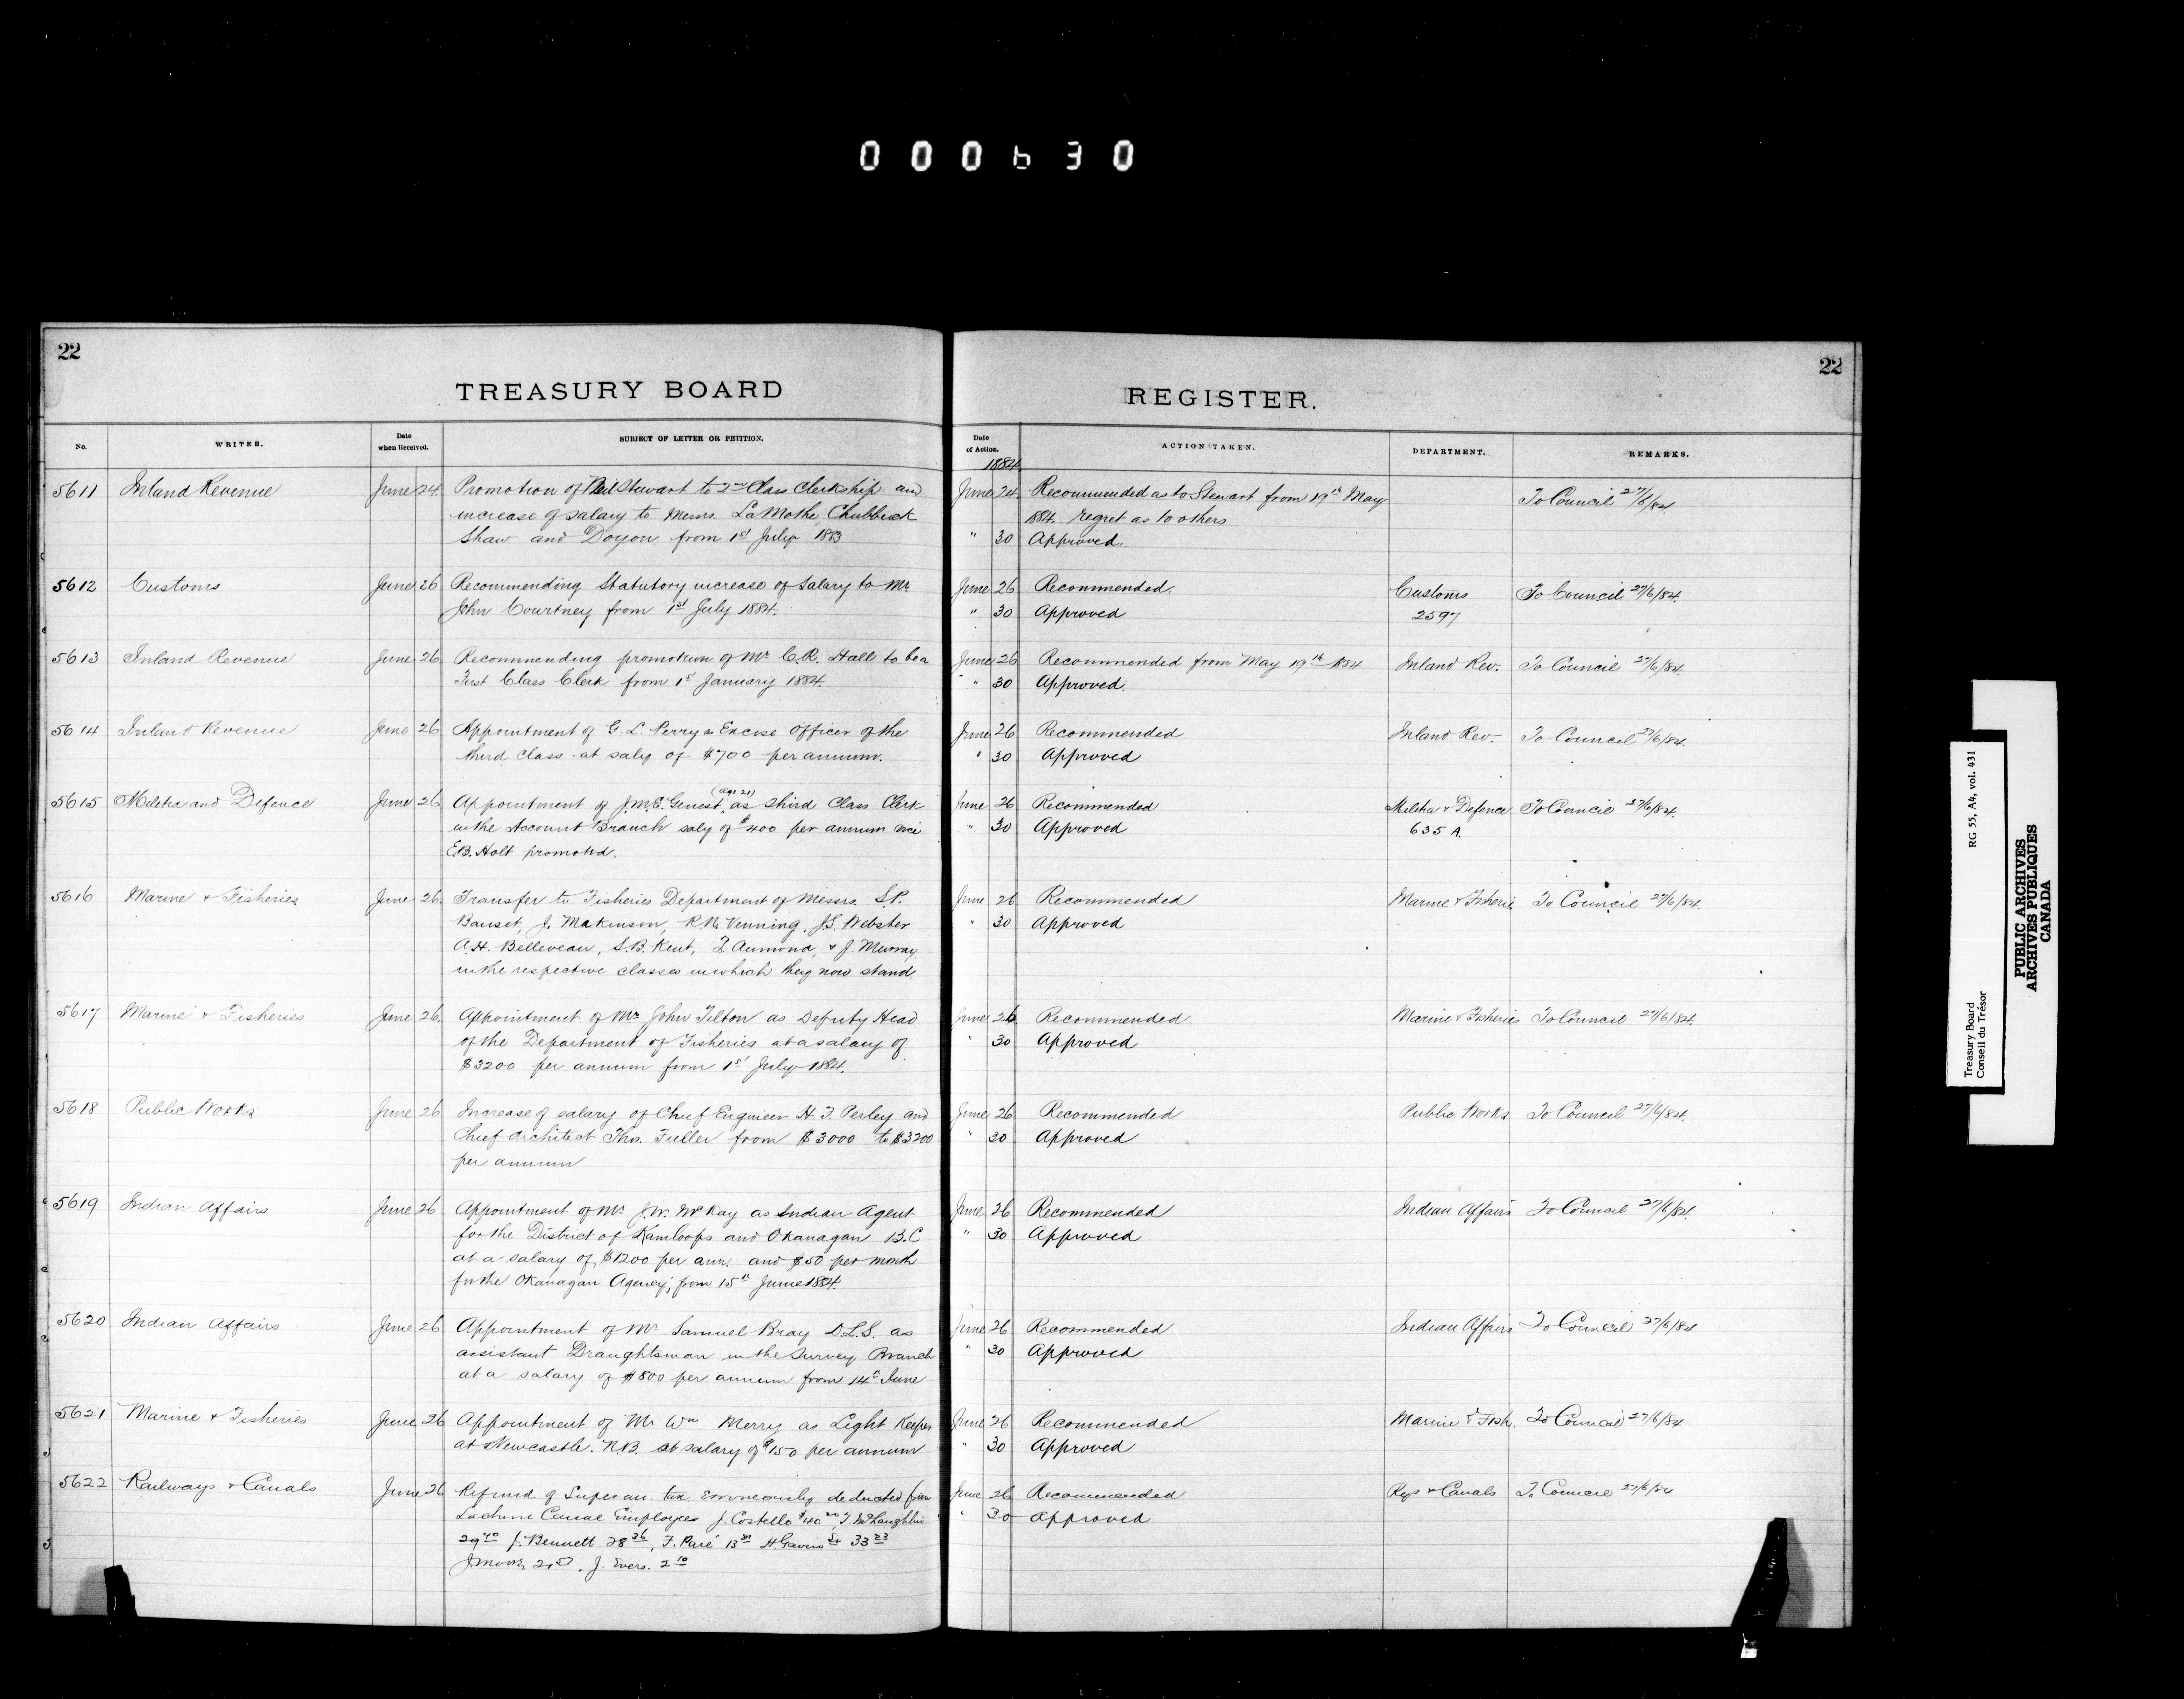 000630
22
22
TREASURY BOARD
REGISTER.
No.
WRITER.
Date when Received.
SUBJECT OF LETTER OR PETITION.
Date of Action.
ACTION TAKEN.
DEPARTMENT.
REMARKS.
1884
5611 Inland Revenue June 24 Promotion of Stewart to 2nd Class Clerkship and
increase of salary to Messrs. LaMothe, Chubbuck
Shaw and Doyon from 1st July 1883
June 24 Recommended as to Stewart from 19th May
1884. regret as to others
" 30 Approved.
To Council 27/6/84
5612 Customs June 26 Recommending Statutory increase of Salary to Mr.
John Courtney from 1st July 1884.
June 26 Recommended. Customs To Council 27/6/84.
" 30 Approved 2597
5613 Inland Revenue June 26 Recommending promotion of Mr. C.R. Hall to be a
First Class Clerk from 1st January 1884.
June 26 Recommended from May 19th 1884 Inland Rev. To Council 27/6/84.
" 30 Approved.
5614 Inland Revenue June 26 Appointment of G. L. Perry a Excise Officer of the
third Class. at saly of $700 per annum.
June 26 Recommended Inland Rev. To Council 27/6/84.
" 30 Approved
5615 Militia and Defence June 26 Appointment of J.M.E. Genest (age 21) as third Class Clerk
in the Account Branch saly of $400 per annum vice
E.B. Holt promoted.
June 26 Recommended Militia & Defence To Council 27/6/84.
" 30 Approved 635 A.
5616 Marine & Fisheries June 26. Transfer to Fisheries Department of Messrs. S.P.
Bauset, J. Makinson, R.N. Venning, J.S. Webster
A.H. Belleveau, S.B. Kent, Aumond, & J. Murray,
in the respective classes in which they now stand.
June 26 Recommended Marine & Fisherie To Council 27/6/84.
" 30 Approved
5617 Marine & Fisheries June 26. Appointment of Mr. John Tilton as Deputy Head
of the Department of Fisheries at a salary of
$3200 per annum from 1st July 1884.
June 26 Recommended. Marine & Fisheries To Council 27/6/84.
" 30 Approved
5618 Public Works June 26 Increase of salary of Chief Engineer H. F. Perley and
Chief Architect Thos. Fuller from $3000 to $3200
per annum
June 26 Recommended Public Works To Council 27/6/84.
" 30 Approved
5619 Indian Affairs June 26 Appointment of Mr. J.W. McKay as Indian Agent
for the District of Kamloops and Okanagan B.C
at a salary of $1200 per ann. and $50 per month
for the Okanagan Agency, from 15th June 1884.
June 26 Recommended Indian Affairs To Council 27/6/84.
" 30 Approved
5620 Indian Affairs June 26 Appointment of Mr. Samuel Bray D.L.S. as
assistant Draughtsman in the Survey Branch
at a salary of $800 per annum from 14th June
June 26 Recommended Indian Affairs To Council 27/6/84
" 30 Approved
5621 Marine & Fisheries June 26 Appointment of Mr Wm Merry as Light Keeper
at Newcastle. N.B. at salary of $150 per annum
June 26 Recommended Marine & Fish. To Council 27/6/84
" 30 Approved
5622 Railways & Canals June 26 Refund of Superan. tax erroneously deducted from
Lachine Canal Employees J. Costello $40 T. McLaughlin
29 40 J. Bennett 28 36, F. Paré 13 H. Gavin Sr 33 23
J. Evers. 2 10
June 26 Recommended Rys & Canals To Council 27/6/84
" 30 Approved
Treasury Board
Conseil du Trésor
RG 55, A4, vol. 431
PUBLIC ARCHIVES
ARCHIVES PUBLIQUES
CANADA